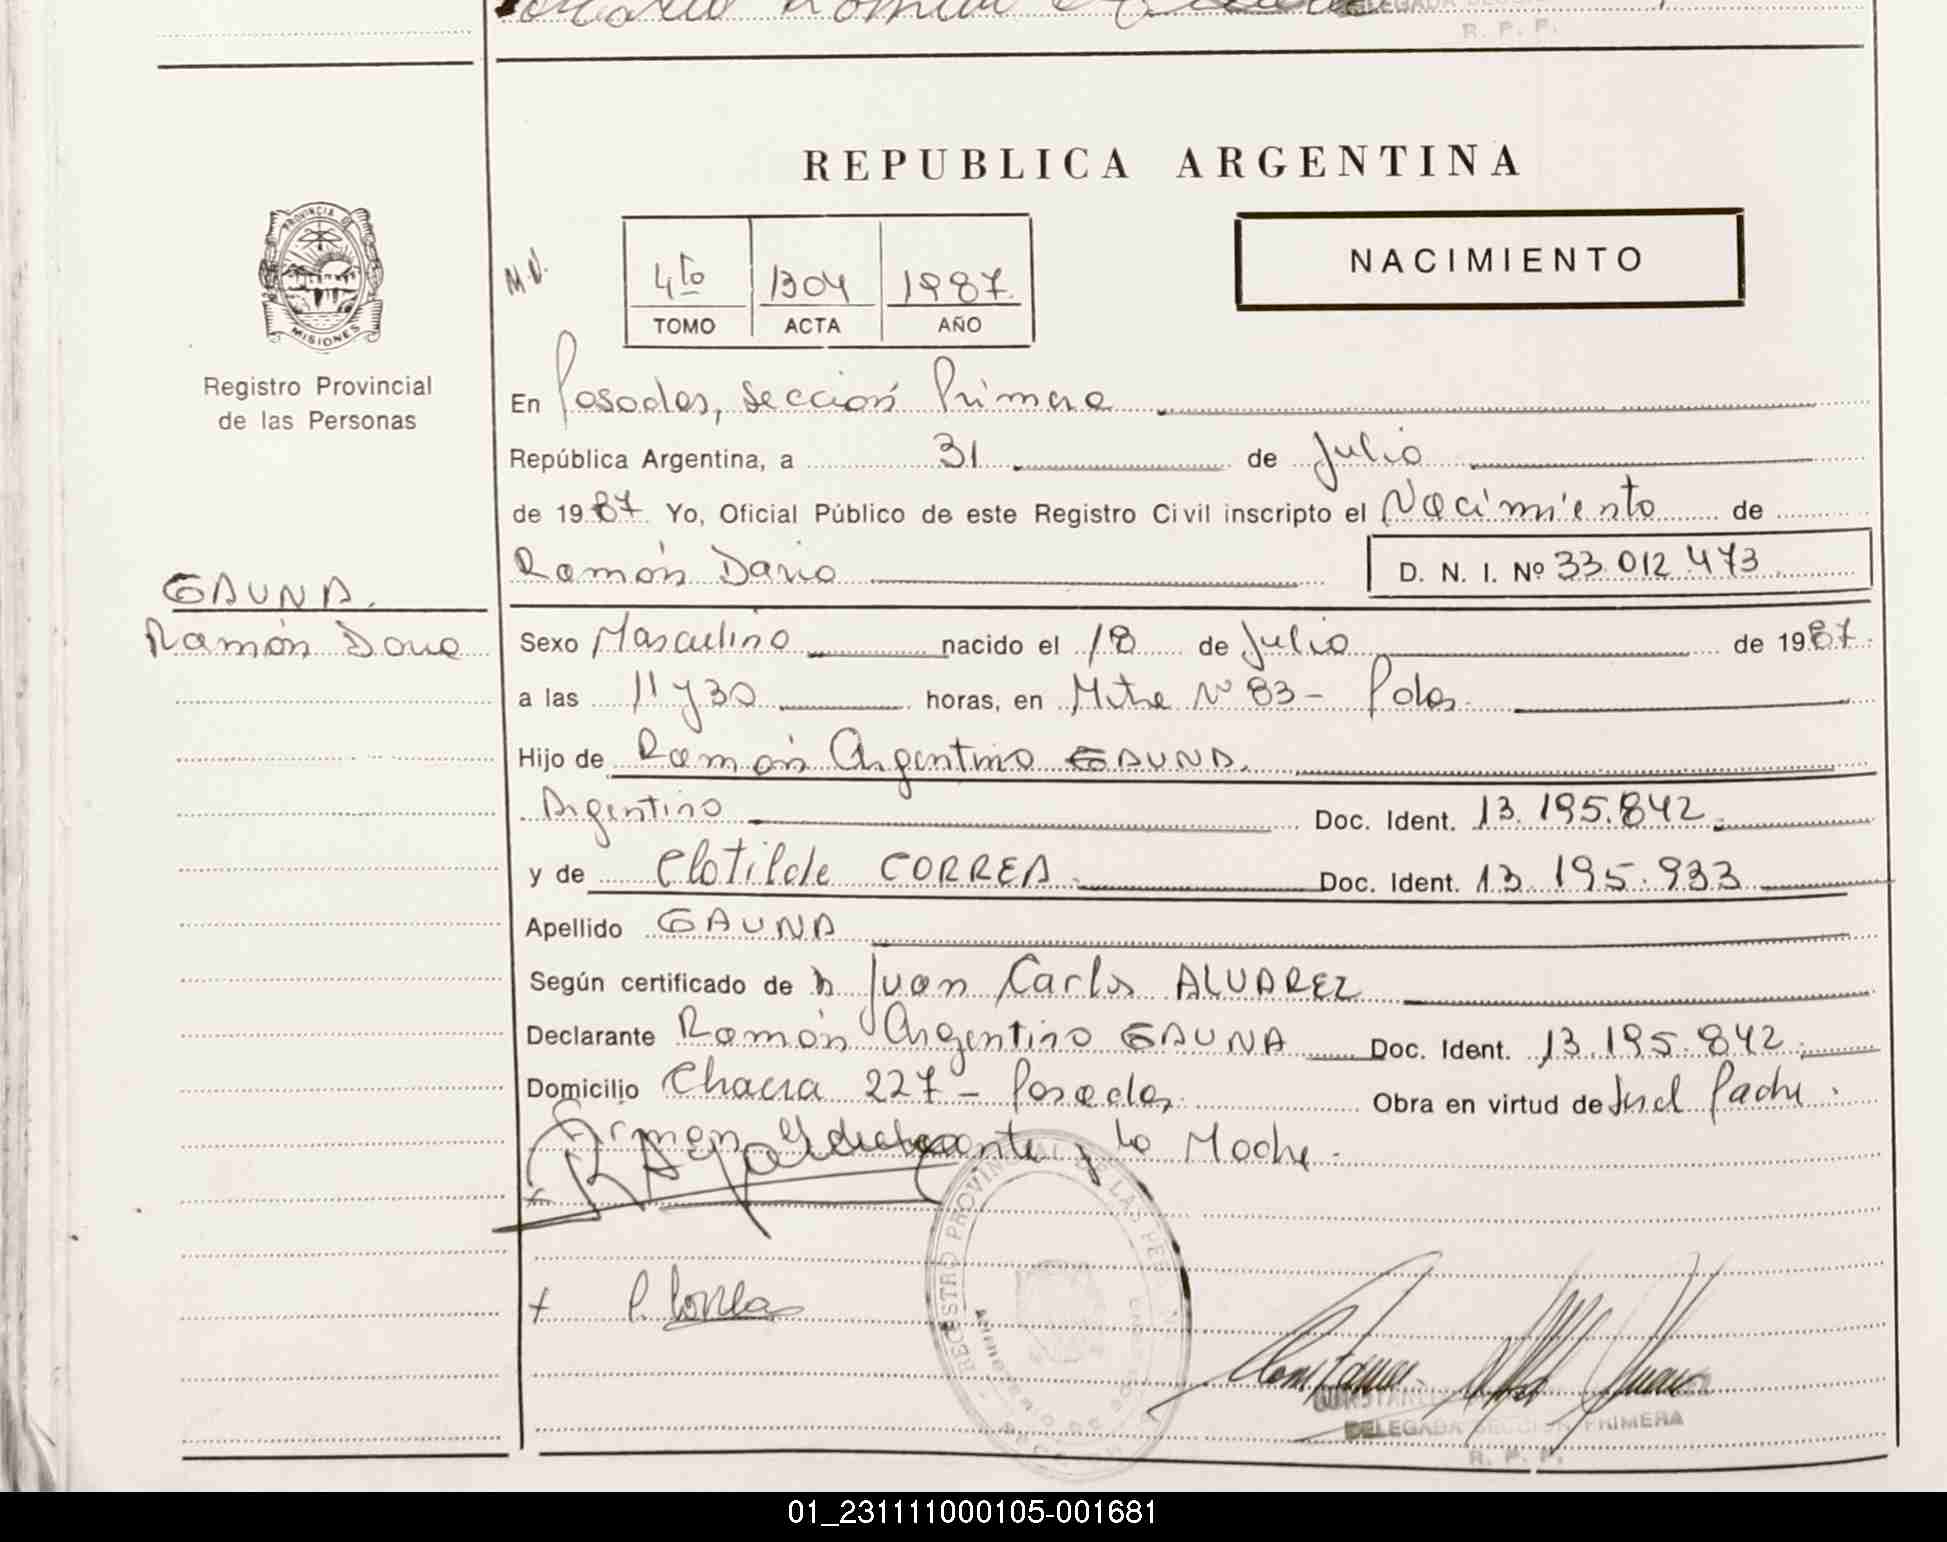 R. P. P.
REPUBLICA ARGENTINA
PROVINCIA DE
MISIONES
Registro Provincial
de las Personas
M.N.
4to 1304 1987
TOMO ACTA AÑO
NACIMIENTO
En Posadas, sección Primera
República Argentina, a 31 de Julio
de 1987 Yo, Oficial Público de este Registro Civil inscripto el Nacimiento de
Ramón Dario D. N. I. Nº 33.012.473
GAUNA.
Ramón Dario
Sexo Masculino nacido el 18 de Julio de 1987
a las 11 y 30 horas, en Mitre Nº 83 - Pdas
Hijo de Ramón Argentino GAUNA.
Argentino Doc. Ident. 13.195.842
y de Clotilde CORREA Doc. Ident. 13.195.933
Apellido GAUNA
Según certificado de Juan Carlos ALVAREZ
Declarante Ramón Argentino GAUNA Doc. Ident. 13.195.842
Domicilio Chacra 227 - Posadas Obra en virtud de ser el Padre.
Firman el declarante y la Madre.
REGISTRO PROVINCIAL DE LAS PERSONAS
DELEGADA SECCION PRIMERA
R. P. P.
01_231111000105-001681